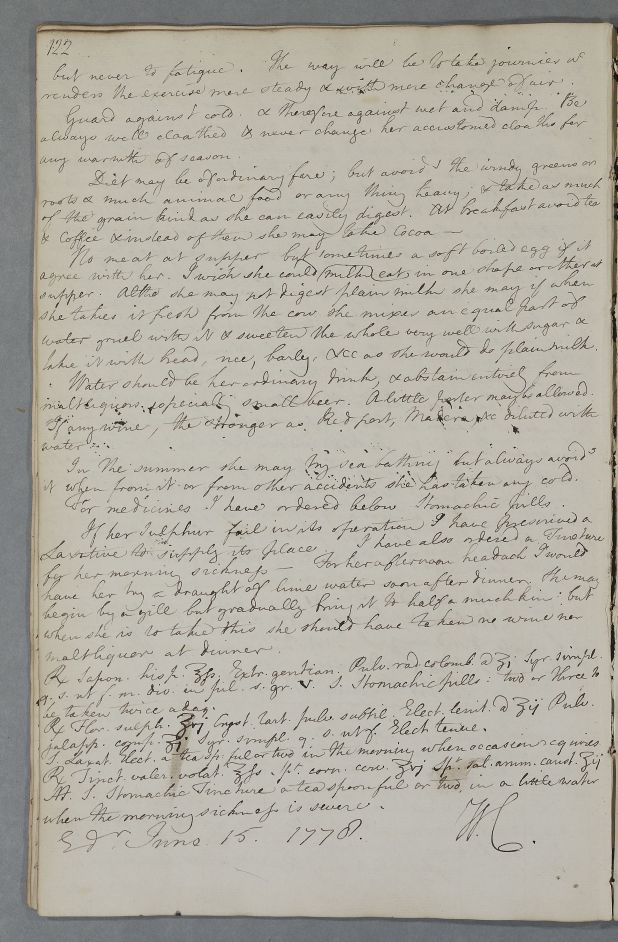 122
but never to fatigue. The way will be to take journies as
renders the exercise more steady & with more change of air.
Guard against cold. & therefore against wet and damp. Be
always well cloathed & never change her accustomed cloaths for
any warmth of season.
Diet may be of ordinary fare; but avoid the windy greens or
roots & much animal food or any thing heavy; & take as much
of the grain kind as she can easily digest. At breakfast avoid tea
& Coffee & instead of them she may take Cocoa —
No meat at supper but sometimes a soft boiled egg if it
agree with her. I wish she could milk eat in one shape or other at
supper. Altho she may not digest plain milk she may if when
she takes it fresh from the cow she mixes an equal part of
water gruel with it & sweeten the whole very well with sugar &
take it with bread, rice, barley, &cc as she would do plain milk.
Water should be her ordinary drink, & abstain entirely from
malt liquors especially small beer. A little porter may be allowed.
If any wine, the stronger as Red port, Madera, &c diluted with
water.
In the summer she may try sea bathing but always avoid
it when from it or from other accidents she has taken any cold.
For medicines I have ordered below Stomachic pills.
If her Sulphur fail in its operation I have prescrived a
Laxative to supply its place. I have also ordered a Tincture
for her morning sickness — For her afternoon headach I would
have her try a draught of lime water soon after dinner. She may
begin by a gill but gradually bring it to half a mutchkin: but
when she is to take this she should have taken no wine nor
malt liquor at dinner.
Rx Sapon. hisp. ʒss. Extr. gentian. Pulv. rad colomb. a ʒi Syr. simpl.
q. s. ut f. m. div. in pil. s. gr. v. S. Stomachic pills: two or three to
be taken twice a day.
Rx Flor. sulph. ʒvj Cryst. tart. pulv. subtil. Elect. lenit. a ʒij Pulv.
jalapp. comp. ʒj Syr. simpl. q. s. ut f. Elect. tenue.
S. Laxat. Elect. a tea sp.ful or two in the morning when occasion requires.
Rx Tinct. valer. volat. ʒss Spt. corn. cerv. ʒvj Spt. sal. amm. caust. ʒij
M. S. Stomachic Tincture a tea spoonful or two in a little water
when the morning sickness is severe.
Edr. June 15. 1778. W.C.